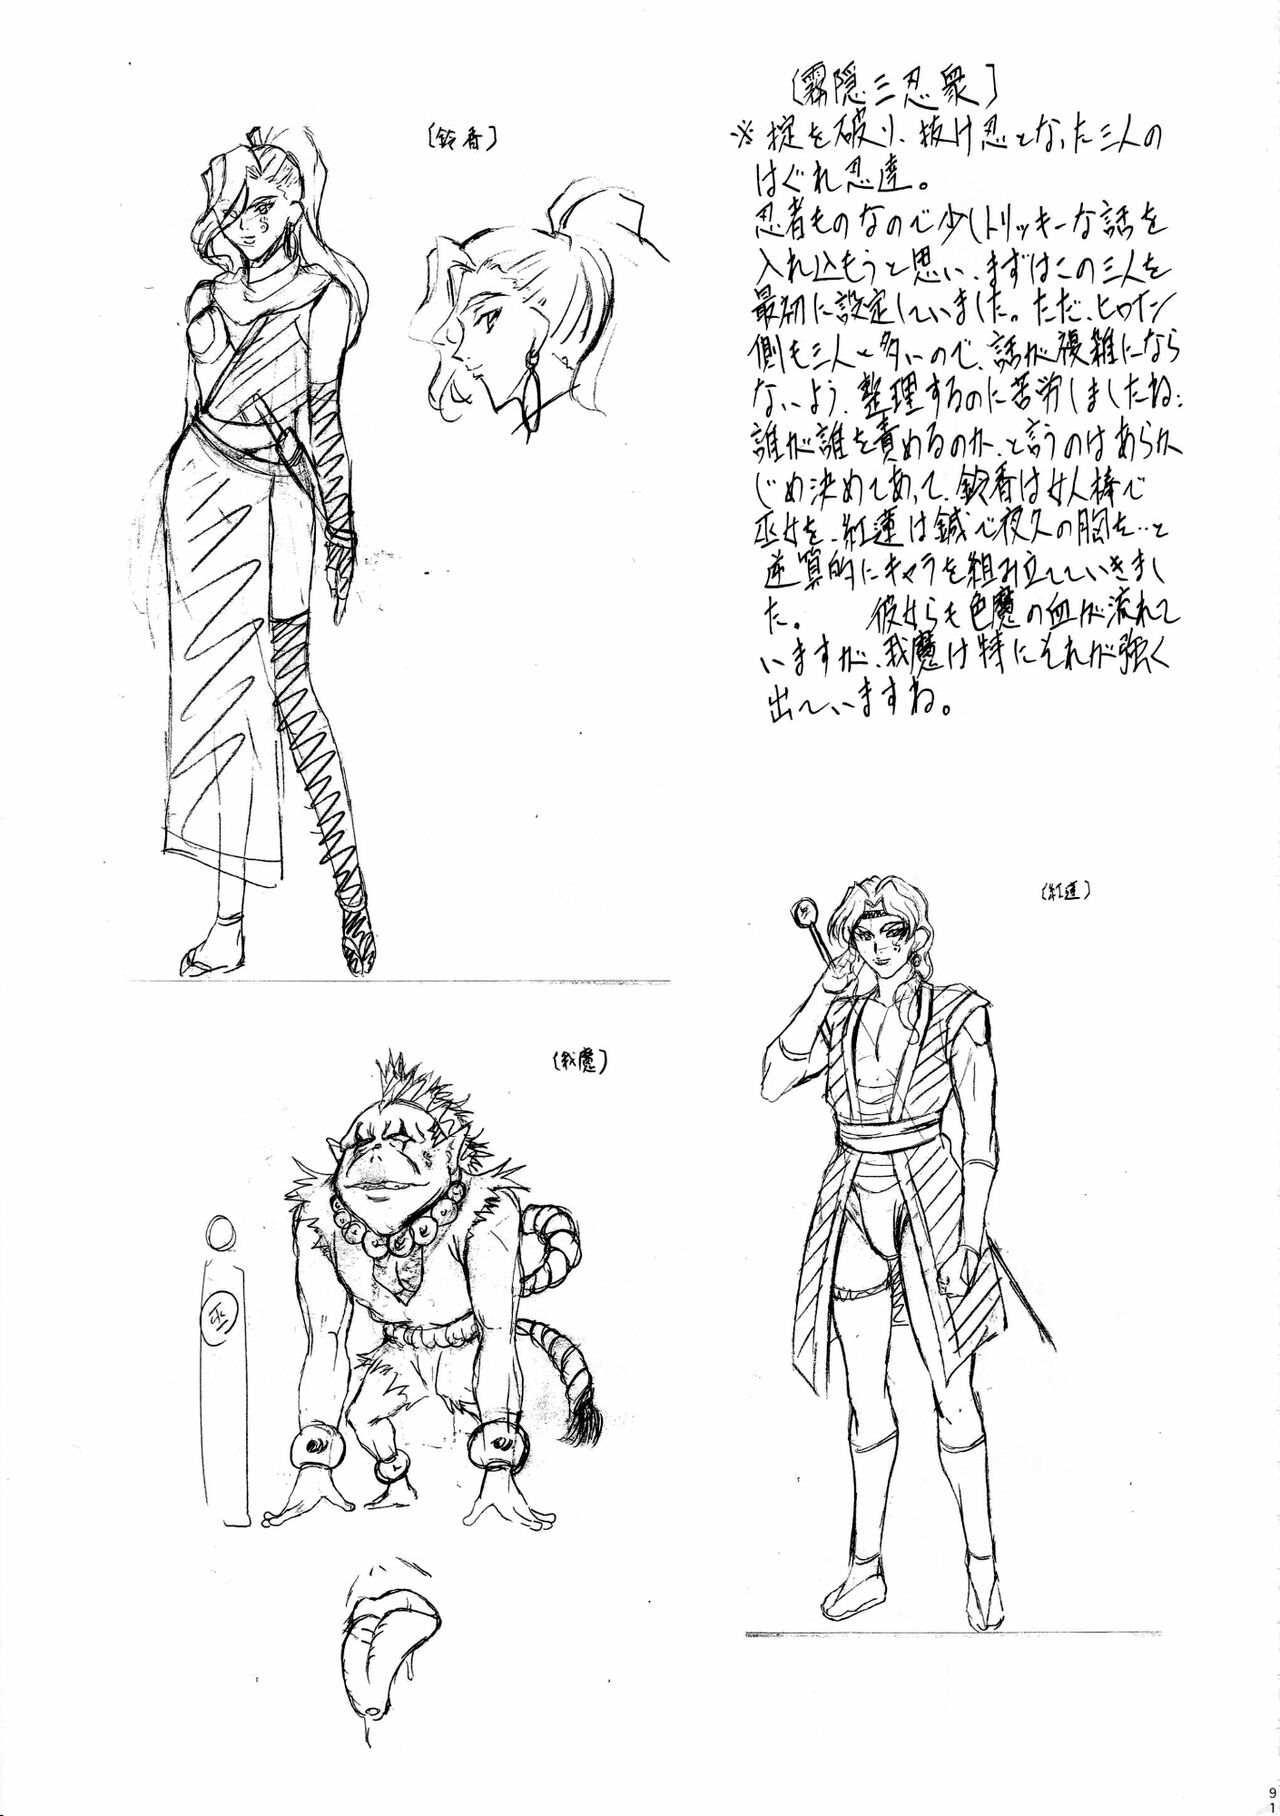 〔霧隠三忍衆〕
※掟を破り、抜け忍となった三人の
はぐれ忍達。
忍者ものなので少しトリッキーな話を
入れ込もうと思い、まずはこの三人を
最初に設定していました。ただ、ヒロイン
側も三人と多いので、話が複雑になら
ないよう、整理するのに苦労しましたね…
誰が誰を責めるのか、と言うのはあらか
じめ決めてあって、鈴香は女人棒で
巫女を、紅蓮は鍼で夜久の胸を…と
逆算的にキャラを組み立てていきまし
た。 彼女らも色魔の血が流れて
いますが、我魔は特にそれが強く
出ていますね。
〔鈴香〕
〔紅蓮〕
〔我魔〕
巫
91